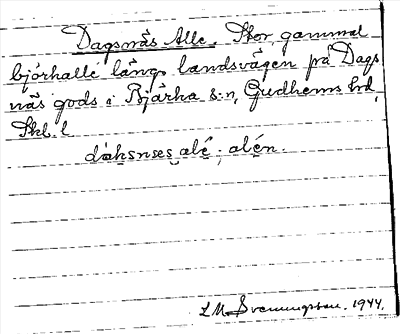 Dagsnäs Alle. Stor, gammal
björkalle längs landsvägen på Dags
näs gods i Bjärka s:n, Gudhems hd,
Skbl.
dàksnses alé ; alén.
L M Svenungsson. 1944.